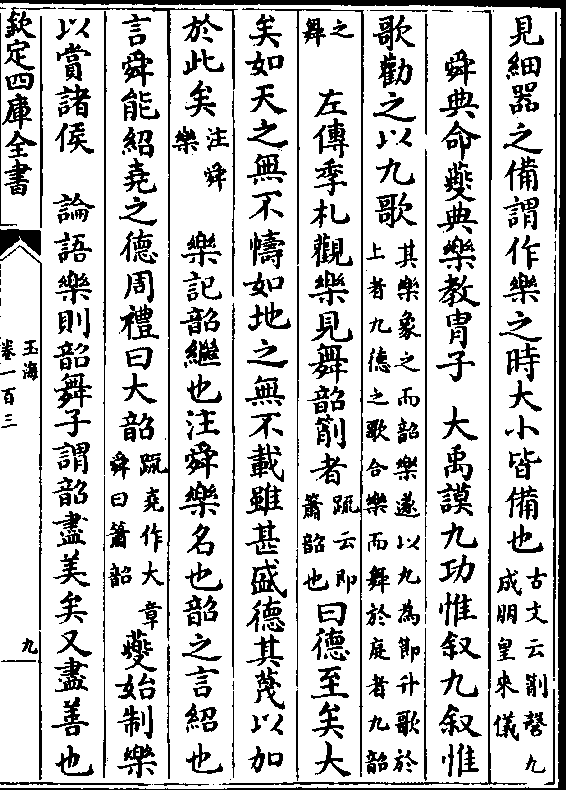 見細器之備謂作樂之時大小皆備也古文云削磬九成朋皇來儀
舜典命夔典樂教胄子　大禹謨九功惟叙九叙惟
歌勸之以九歌其樂象之而韶樂遂以九為節升歌於上者九德之歌合樂而舞於庭者九韶
之舞　左傳季札觀樂見舞韶箾者疏云即簫韶也曰德至矣大
矣如天之無不幬如地之無不載雖甚盛德其蔑以加
於此矣注舜樂　樂記韶繼也注舜樂名也韶之言紹也
言舜能紹堯之德周禮曰大韶疏堯作大章舜曰簫韶夔始制樂
以賞諸侯　論語樂則韶舞子謂韶盡美矣又盡善也
欽定四庫全書
玉海
卷一百三
九